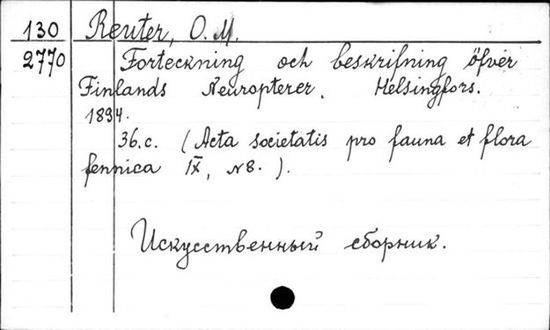 130 Reuter, O. M.
2770 Forteckning och beskrifning öfver
Finlands Neuropterer. Helsingfors.
1894.
36.c. (Acta societatis pro fauna et flora
fennica IX, N8.).
Искусственный сборник.